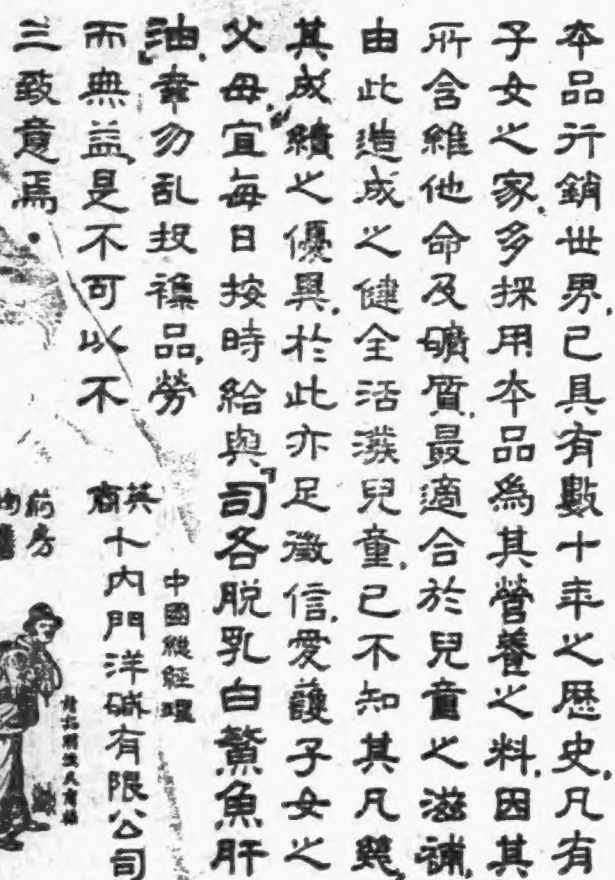 本品行銷世界,已具有數十年之歷史,凡有
子女之家,多採用本品爲其營養之料,因其
所含維他命及礦質,最適合於兒童之滋補,
由此造成之健全活潑兒童,已不知其凡幾,
其成績之優異,於此亦足徵信,愛護子女之
父母,宜每日按時給與『司各脱乳白鰵魚肝
油』幸勿乱投雜品,勞
而無益,是不可以不
三致意焉。
中國總經理
英商卜內門洋碱有限公司